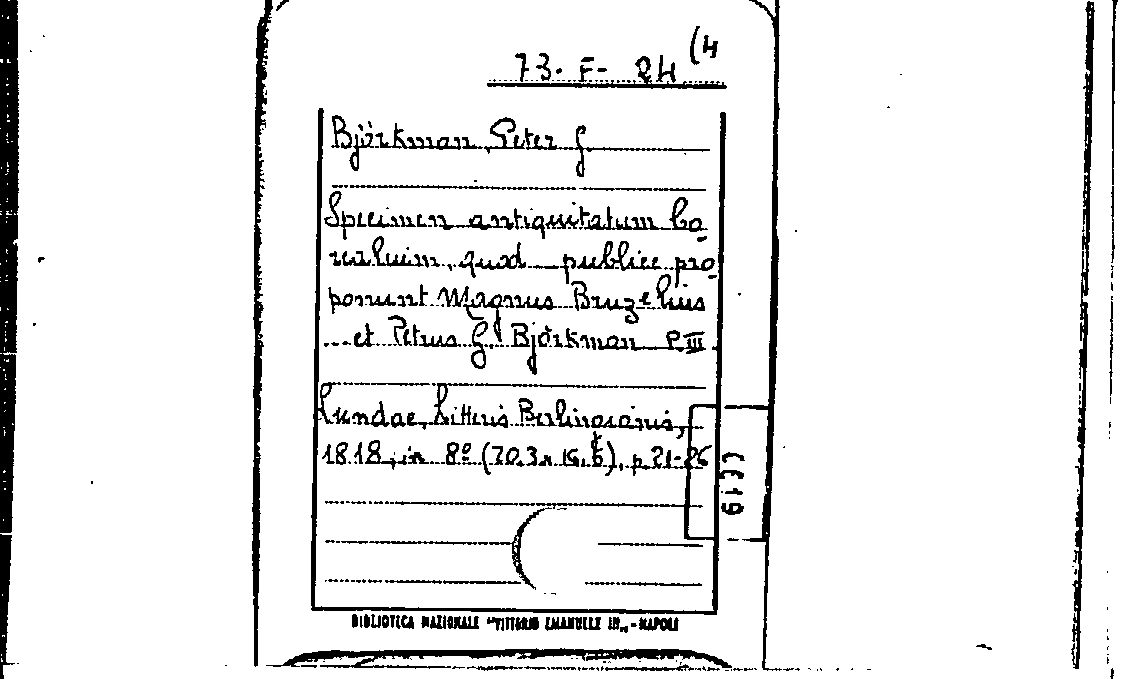 73-F-24 (4
Björkman, Peter G.
Specimen antiquitatum bo-
realium, quod publice pro-
ponunt Magnus Bruzelius
... et Petrus G. Björkman P. III.
Lundae, Litteris Berlingianis,
1818, in 8º (20.3 x 16.5), p. 21-26
BIBLIOTECA NAZIONALE "VITTORIO EMANUELE III" - NAPOLI